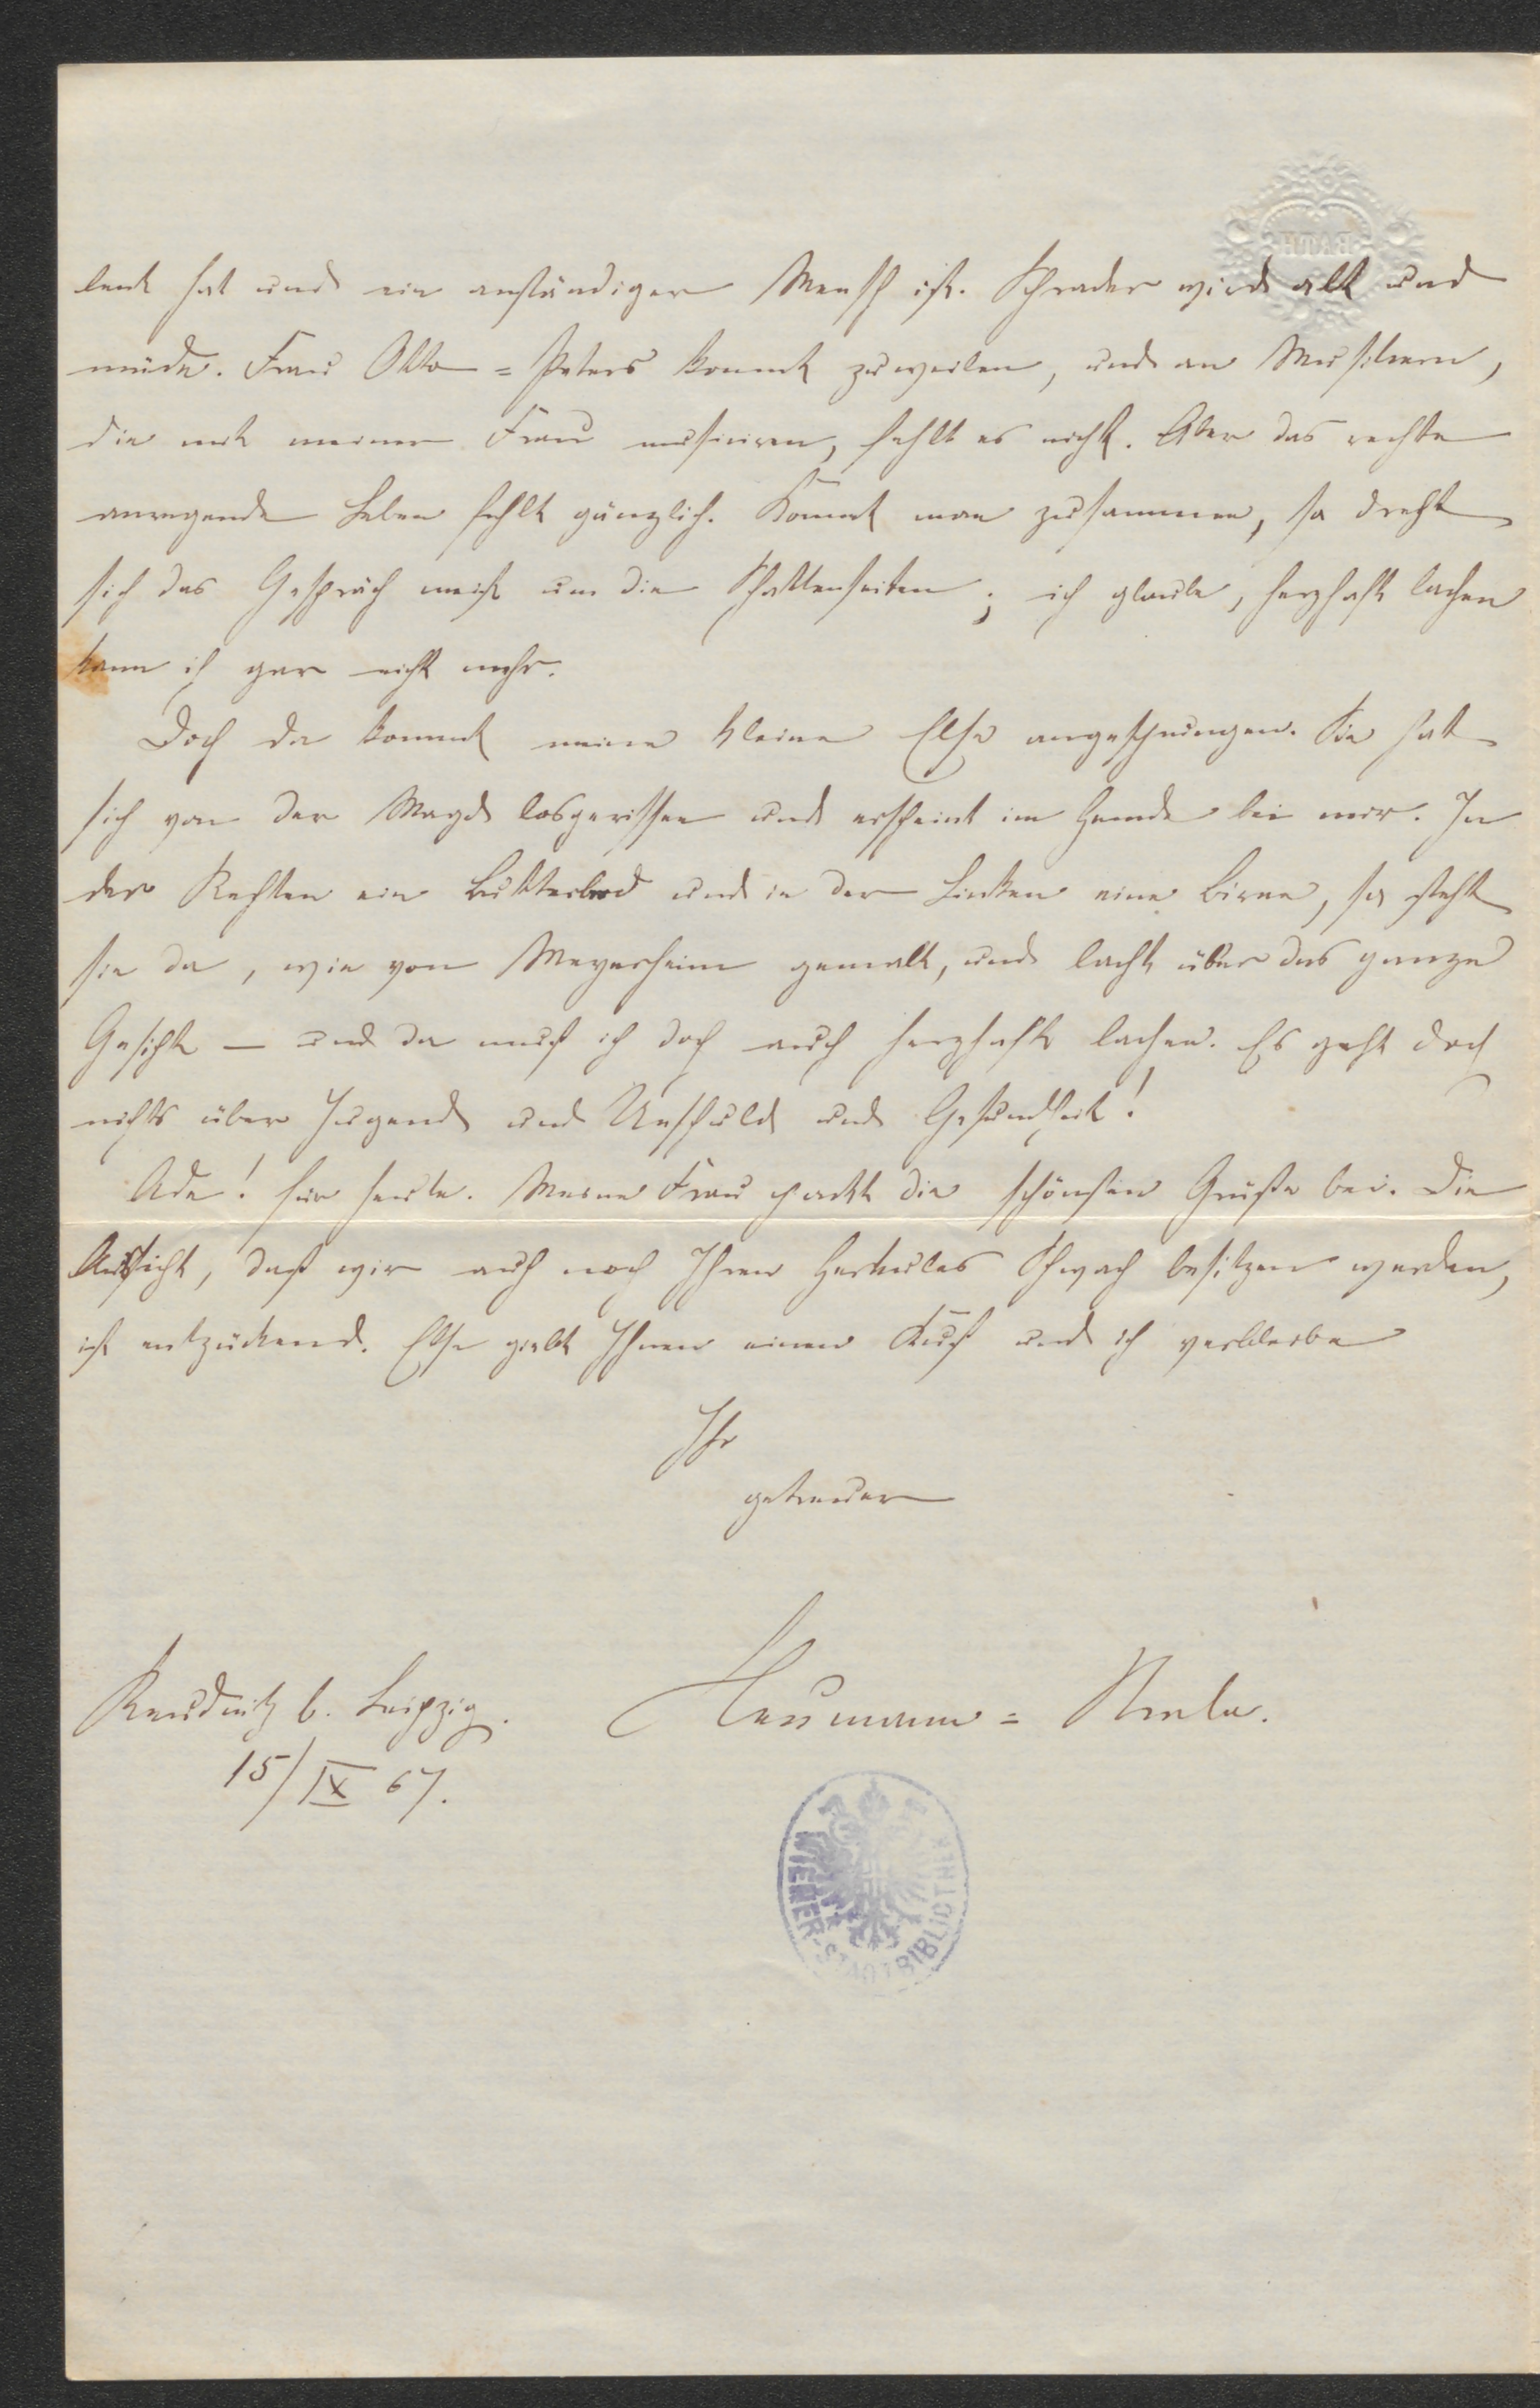 lent hat und ein anständiger Mensch ist. Schrader wird alt und
müde. Frau Otto=Peters kommt zuweilen, und an Musikern,
die mit meiner Frau musiciren, fehlt es nicht. Aber das rechte
anregende Leben fehlt gänzlich. Kommt man zusammen, so dreht
sich das Gespräch meist um die Schattenseiten; ich glaube, herzhaft lachen
kann ich gar nicht mehr.
Doch da kommt meine kleine Else angesprungen. Sie hat
sich von der Magd losgerissen und erscheint im Hemde bei mir. In
der Rechten ein Butterbrod und in der Linken eine Birne, so steht
sie da, wie von Meyerheim gemalt, und lacht über das ganze
Gesicht — und da muß ich doch auch herzhaft lachen. Es geht doch
nichts über Jugend und Unschuld und Gesundheit!
Ade! für heute. Meine Frau packt die schönsten Grüße bei. Die
Aussicht, daß wir auch noch Ihren Herkules Schwach besitzen werden,
ist entzückend. Else giebt Ihnen einen Kuß und ich verbleibe
Ihr
getreuer
Reudnitz b. Leipzig. Neumann=Strela.
15/IX 67.
WIENER-STADTBIBLIOTHEK
BATH